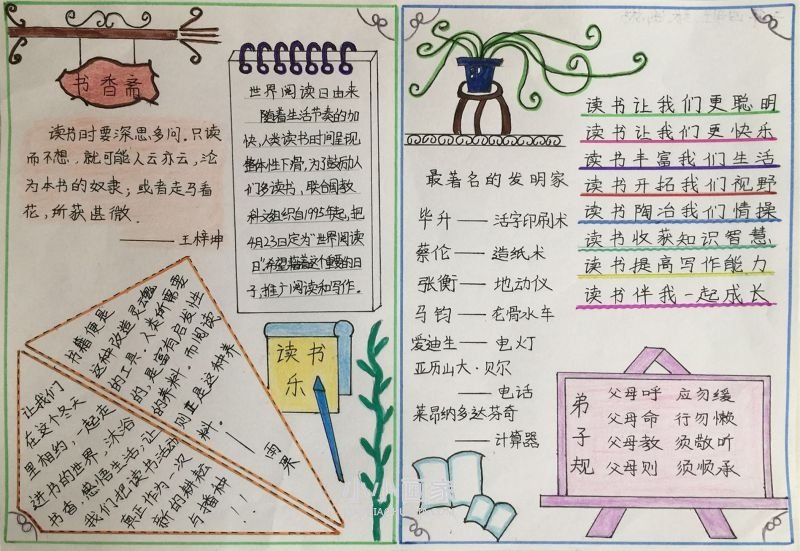 书香斋
读书时要深思多问。只读
而不想，就可能人云亦云，沦
为本书的奴隶；或者走马看
花，所获甚微。
—— 王梓坤
世界阅读日由来
随着生活节奏的加
快，人类阅读时间呈现
整体性下滑，为了鼓励人
们多读书，联合国教
科文组织自1995年起，把
4月23日定为“世界阅读
日”，希望藉着这个重要的日
子，推广阅读和写作。
书籍便是
这种改造灵魂
的工具。人类所需要
的，是富有启发性
的养料。而阅读，
则正是这种养
料。
—— 雨果
让我们
在这个冬天
里相约，一起走
进书的世界，沐浴
书香，感悟生活；让
我们把读书活动
真正作为一次
新的耕耘
与播种
！！
读书
乐
最著名的发明家
毕升——活字印刷术
蔡伦——造纸术
张衡——地动仪
马钧——龙骨水车
爱迪生——电灯
亚历山大·贝尔
——电话
莱昂纳多达芬奇
——计算器
读书让我们更聪明
读书让我们更快乐
读书丰富我们生活
读书开拓我们视野
读书陶冶我们情操
读书收获知识智慧
读书提高写作能力
读书伴我一起成长
弟子规
父母呼 应勿缓
父母命 行勿懒
父母教 须敬听
父母则 须顺承